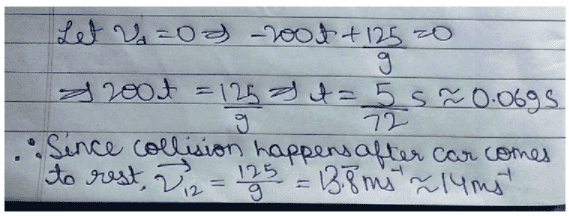 Let V_d = 0 ⇒ -200t + 125/9 = 0
⇒ 200t = 125/9 ⇒ t = 5/72 s ≈ 0.069s
∴ Since collision happens after car comes
to rest, V⃗₁₂ = 125/9 = 13.8̅ ms⁻¹ ≈ 14 ms⁻¹